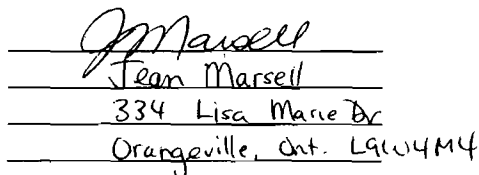 J Marsell
Jean Marsell
334 Lisa Marie Dr
Orangeville, Ont. L9W4M4